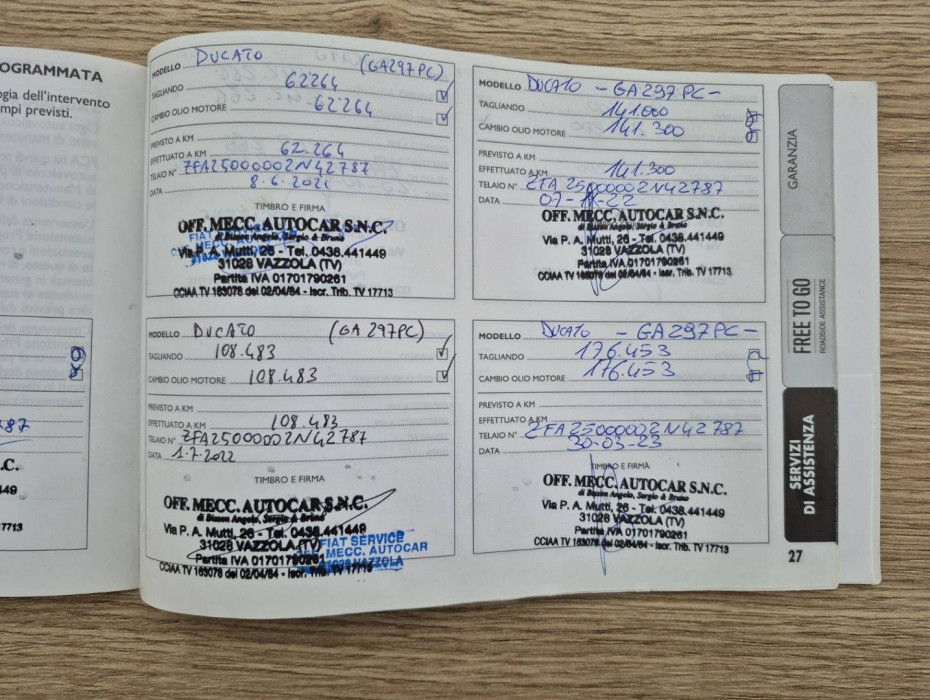 OGRAMMATA
ogia dell'intervento
mpi previsti.
MODELLO DUCATO (GA297PC)
TAGLIANDO 62264
CAMBIO OLIO MOTORE 62.264
PREVISTO A KM
EFFETTUATO A KM 62.264
TELAIO N° ZFA25000002N42787
DATA 8.6.2021
TIMBRO E FIRMA
OFF. MECC. AUTOCAR S.N.C.
di Biason Angelo, Sergio & Bruno
Via P. A. Mutti, 26 - Tel. 0438.441449
31028 VAZZOLA (TV)
Partita IVA 01701790261
CCIAA TV 163078 del 02/04/84 - Iscr. Trib. TV 17713
MODELLO DUCATO (GA297PC)
TAGLIANDO 108.483
CAMBIO OLIO MOTORE 108.483
PREVISTO A KM
EFFETTUATO A KM 108.483
TELAIO N° ZFA25000002N42787
DATA 1.7.2022
TIMBRO E FIRMA
OFF. MECC. AUTOCAR S.N.C.
di Biason Angelo, Sergio & Bruno
Via P. A. Mutti, 26 - Tel. 0438.441449
31028 VAZZOLA (TV)
Partita IVA 01701790261
CCIAA TV 163078 del 02/04/84 - Iscr. Trib. TV 17713
FIAT SERVICE
MECC. AUTOCAR
31028 VAZZOLA
MODELLO DUCATO - GA297PC -
TAGLIANDO 141.000
CAMBIO OLIO MOTORE 141.300
PREVISTO A KM
EFFETTUATO A KM 141.300
TELAIO N° ZFA25000002N42787
DATA 07-11-22
TIMBRO E FIRMA
OFF. MECC. AUTOCAR S.N.C.
di Biason Angelo, Sergio & Bruno
Via P. A. Mutti, 26 - Tel. 0438.441449
31028 VAZZOLA (TV)
Partita IVA 01701790261
CCIAA TV 163078 del 02/04/84 - Iscr. Trib. TV 17713
MODELLO DUCATO - GA297PC -
TAGLIANDO 176.453
CAMBIO OLIO MOTORE 176.453
PREVISTO A KM
EFFETTUATO A KM
TELAIO N° ZFA25000002N42787
DATA 30-03-23
TIMBRO E FIRMA
OFF. MECC. AUTOCAR S.N.C.
di Biason Angelo, Sergio & Bruno
Via P. A. Mutti, 26 - Tel. 0438.441449
31028 VAZZOLA (TV)
Partita IVA 01701790261
CCIAA TV 163078 del 02/04/84 - Iscr. Trib. TV 17713
GARANZIA
FREE TO GO
ROADSIDE ASSISTANCE
SERVIZI
DI ASSISTENZA
27
787
.C.
449
7713